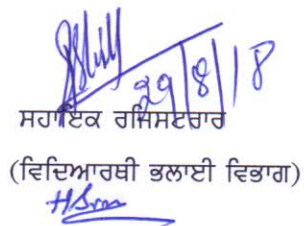 29/8/18
ਸਹਾਇਕ ਰਜਿਸਟਰਾਰ
(ਵਿਦਿਆਰਥੀ ਭਲਾਈ ਵਿਭਾਗ)